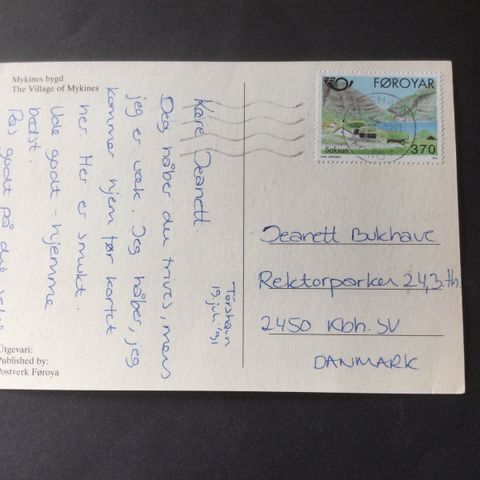 Mykines bygd
The Village of Mykines
Tórshavn
19. juli '91
Kære Jeanett
Jeg håber du trives, mens
jeg er væk. Jeg håber, jeg
kommer hjem før kortet
her. Her er smukt.
Ude godt - hjemme
bedst.
Pas godt på dig selv
Útgevari:
Published by:
Postverk Føroya
FØROYAR
1991
Saksun
370
Jeanett Bukhave
Rektorparken 24,3.th.
2450 Kbh. SV
DANMARK